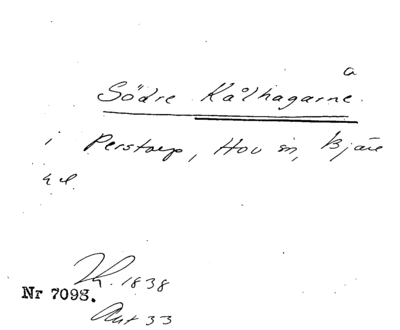 a
Södre Kålhagarne
i Perstorp, Hov sn, Bjäre
hd.
1838
Nr 7098.
Akt 33